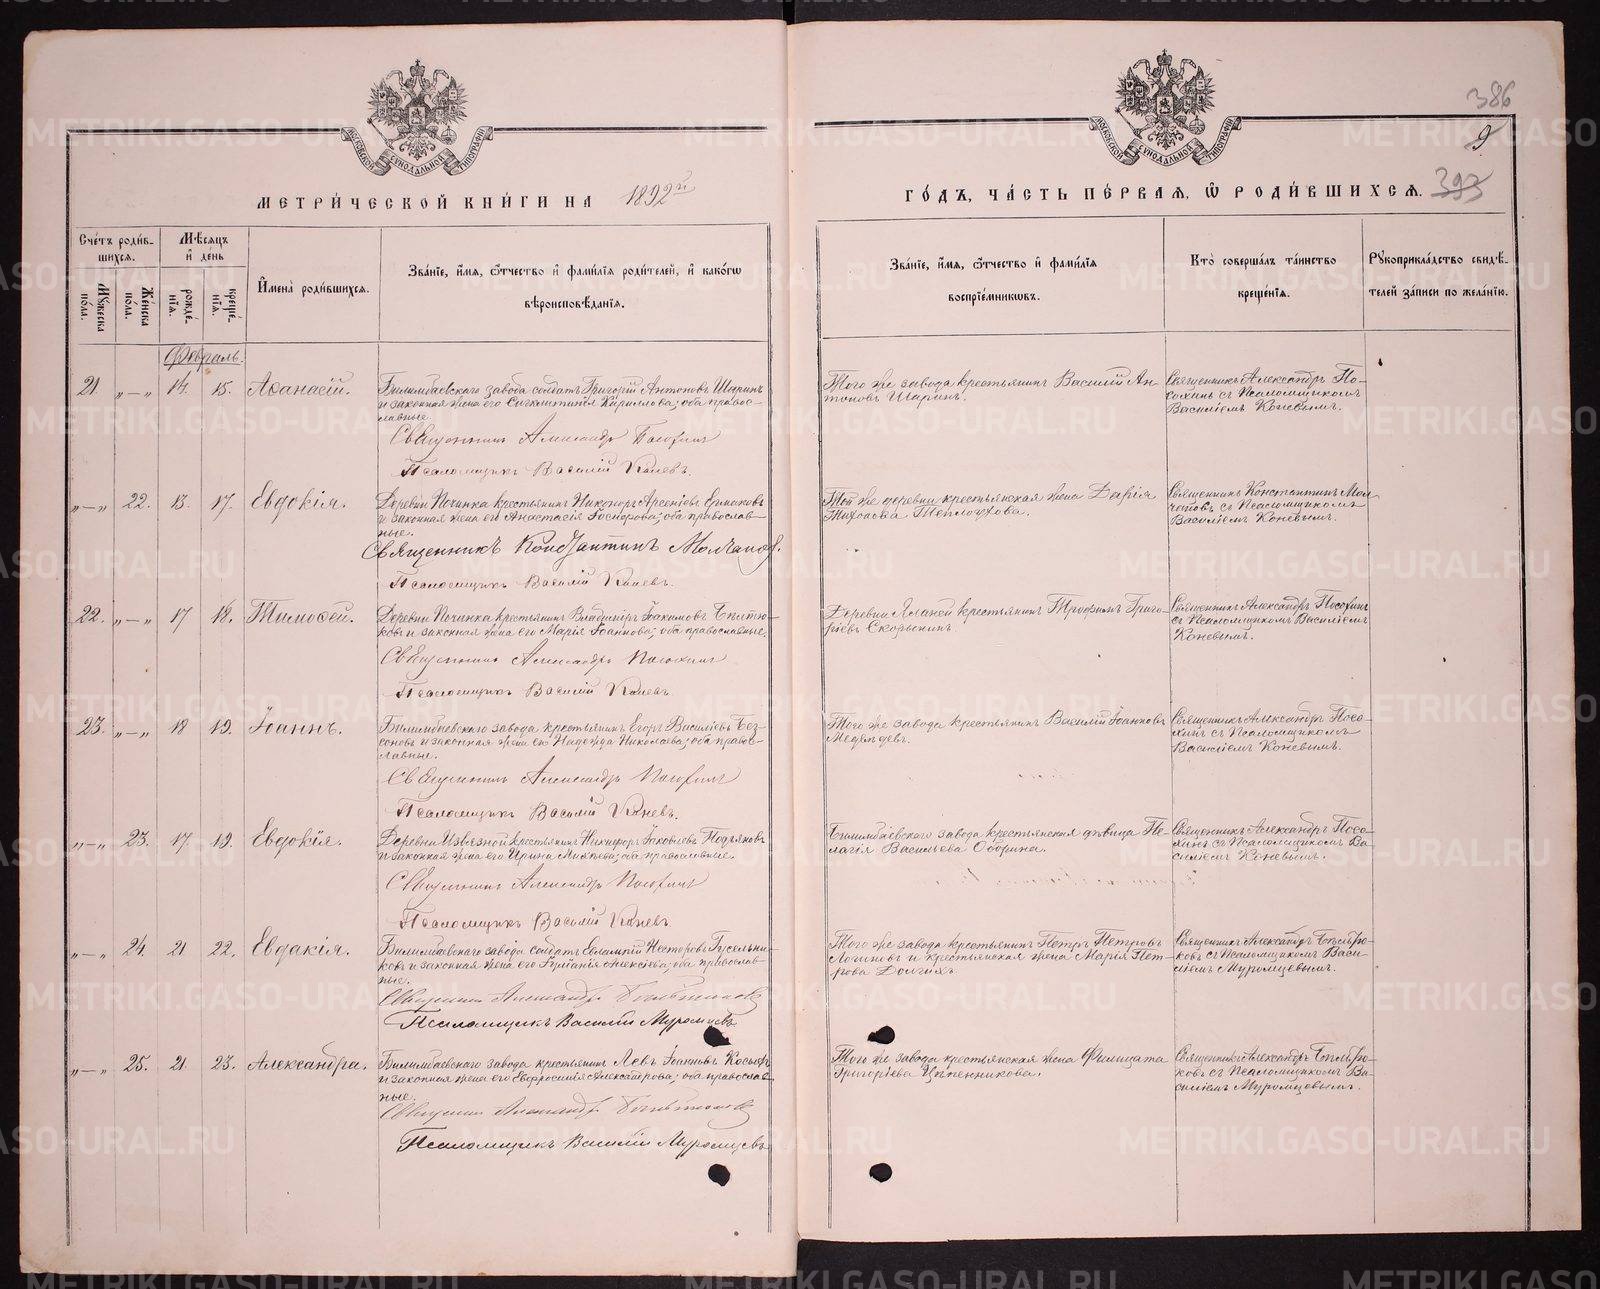 386
9
393
МОСКОВСКОЙ СѴНОДАЛЬНОЙ ТИПОГРАФІИ
МЕТРИ́ЧЕСКОЙ КНИ́ГИ НА 1892й
ГО́ДЪ, ЧА́СТЬ ПЕ́РВАЯ, Ѡ РОДИ́ВШИХСЯ.
Сче́тъ роди́в-
шихся.
Мѣ́сяцъ
и де́нь
Мꙋ́жеска по́ла.
Же́нска по́ла.
рожде́нїѧ.
креще́нїѧ.
И҆мена̀ роди́вшихся.
Зва́нїе, и҆́мя, ѻ҆́тчество и҆ фами́лїѧ роди́телей, и҆ како́гѡ
вѣроисповѣ́данїѧ.
Зва́нїе, и҆́мя, ѻ҆́тчество и҆ фами́лїѧ
воспрїе́мникѡвъ.
Кто̀ соверша́лъ та́инство
креще́нїѧ.
Рꙋкоприкла́дство свидѣ́-
телей за́писи по жела́нїю.
Февраль.
21. „—„ 14. 15. Аѳанасій.
Билимбаевскаго завода солдатъ Григорій Антоновъ Шаринъ
и законная жена его Сигклитикія Кириллова; оба право-
славные.
Священникъ Александръ Посохинъ
Псаломщикъ Василій Коневъ.
Того же завода крестьянинъ Василій Ан-
тоновъ Шаринъ.
Священникъ Александръ По-
сохинъ съ Псаломщикомъ
Василіемъ Коневымъ.
„—„ 22. 13. 17. Евдокія.
Деревни Починка крестьянинъ Никаноръ Арсеніевъ Ермаковъ
и законная жена его Анастасія Госифова; оба православ-
ные.
Священникъ Константинъ Молчановъ.
Псаломщикъ Василій Коневъ.
Той же деревни крестьянская жена Дарія
Тихонова Теплоухова.
Священникъ Константинъ Мол-
чановъ съ Псаломщикомъ
Василіемъ Коневымъ.
22. „—„ 17 18. Тимоѳей.
Деревни Починка крестьянинъ Владиміръ Іакимовъ
и законная жена его Марія Іоаннова; оба православные.
Священникъ Александръ Посохинъ
Псаломщикъ Василій Коневъ
Деревни крестьянинъ Трофимъ Григо-
ріевъ Скорынинъ
Священникъ Александръ Посохинъ
съ Псаломщикомъ Василіемъ
Коневымъ.
23. „—„ 18 19. Іоаннъ.
Билимбаевскаго завода крестьянинъ Егоръ Василіевъ Без-
соновъ и законная жена его Надежда Николаева; оба право-
славные.
Священникъ Александръ Посохинъ
Псаломщикъ Василій Коневъ.
Того же завода крестьянинъ Василій Іоанновъ
Медвѣдевъ.
Священникъ Александръ Посо-
хинъ съ Псаломщикомъ
Василіемъ Коневымъ.
„—„ 23. 17. 19. Евдокія.
Деревни Извѣзной крестьянинъ Никифоръ Іаковлевъ Подъяковъ
и законная жена его Ирина; оба православные.
Священникъ Александръ Посохинъ
Псаломщикъ Василій Коневъ
Билимбаевскаго завода крестьянская дѣвица Пе-
лагія Васильева Оборина.
Священникъ Александръ Посо-
хинъ съ Псаломщикомъ Ва-
силіемъ Коневымъ.
„—„ 24. 21 22. Евдакія.
Билимбаевскаго завода солдатъ Евлампій Несторовъ Гусельни-
ковъ и законная жена его Алексіева; оба православ-
ные.
Священникъ Александръ
Псаломщикъ Василій Муромцевъ
Того же завода крестьянинъ Петръ Петровъ
Логиновъ и крестьянская жена Марія Пет-
рова Долгихъ
Священникъ Александръ
съ Псаломщикомъ Васи-
ліемъ Муромцевымъ.
„—„ 25. 21 23. Александра.
Билимбаевскаго завода крестьянинъ Левъ Іоанновъ
и законная жена его Евфросинія Александрова; оба православ-
ные.
Священникъ Александръ
Псаломщикъ Василій Муромцевъ
Того же завода крестьянская жена Фелицата
Григоріева
Священникъ Александръ
съ Псаломщикомъ Ва-
силіемъ Муромцовымъ.
METRIKI.GASO-URAL.RU